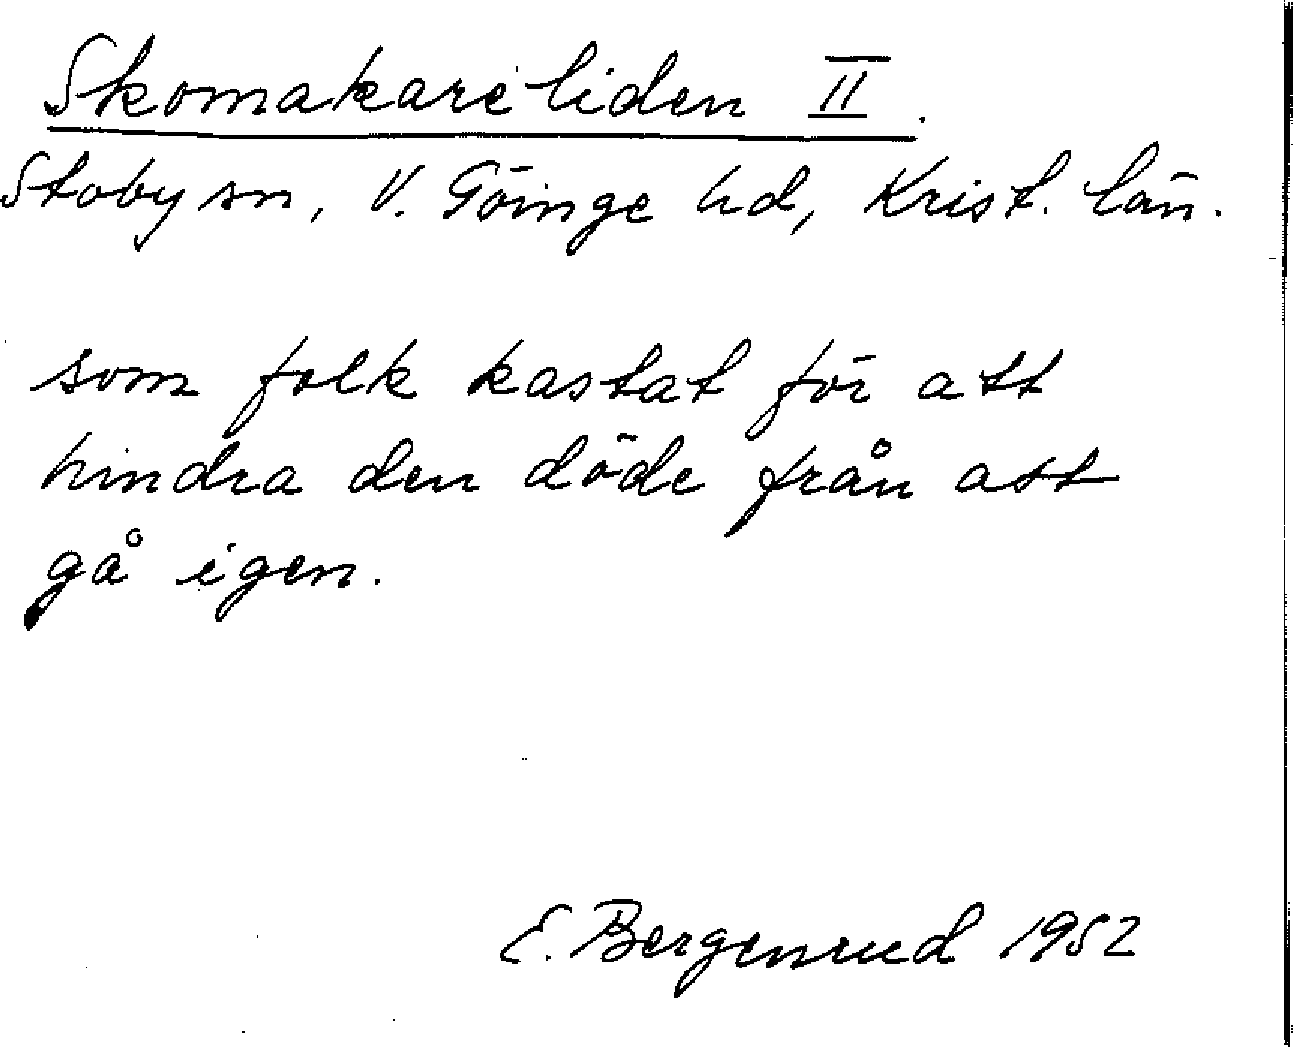 Skomakareliden II.
Stoby sn, V. Göinge hd, Krist. län.
som folk kastat för att
hindra den döde från att
gå igen.
E. Bergenrud 1952